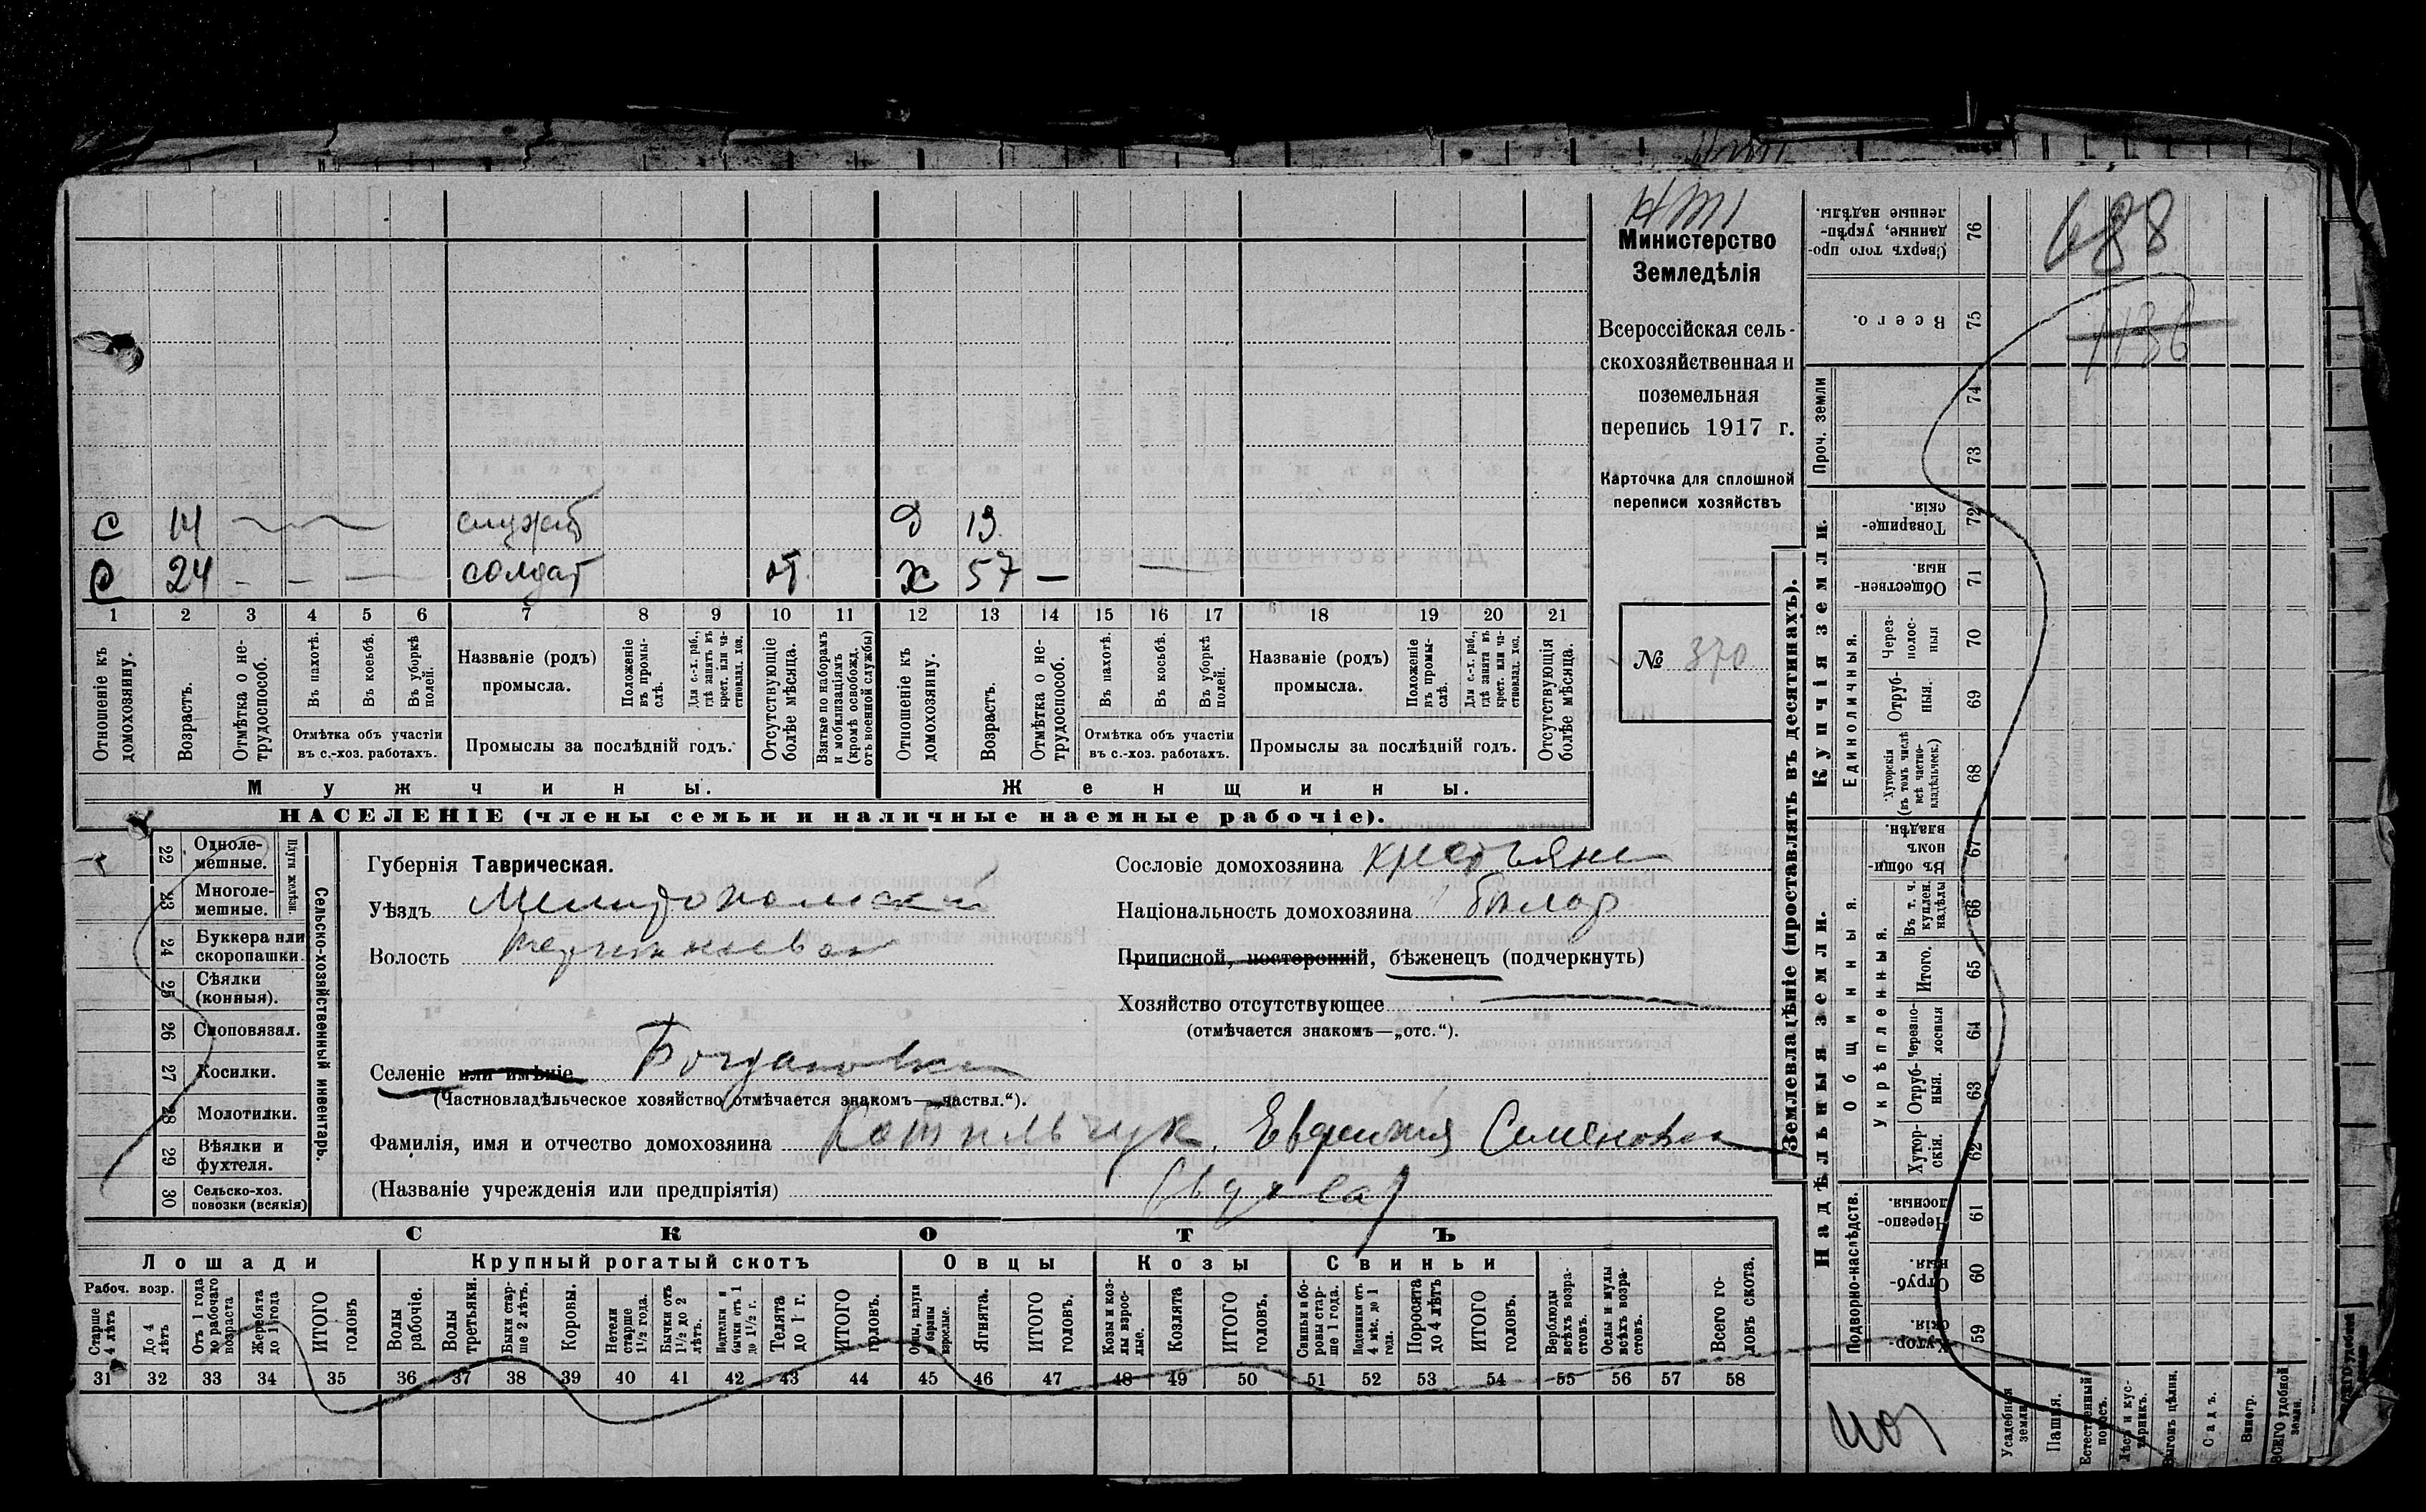 Министерство
Земледѣлія
Всероссійская сель-
скохозяйственная и
поземельная
перепись 1917 г.
Карточка для сплошной
переписи хозяйствъ
№ 370
с 14 служит д 13
с 24 солдат от ж 57
1 2 3 4 5 6 7 8 9 10 11 12 13 14 15 16 17 18 19 20 21
Отношеніе къ домохозяину.
Возрастъ.
Отмѣтка о не-трудоспособ.
Въ пахотѣ.
Въ косьбѣ.
Въ уборкѣ полей.
Отмѣтка объ участіи
въ с.-хоз. работахъ.
Названіе (родъ)
промысла.
Положеніе въ промы-слѣ.
Для с.-х. раб., гдѣ занятъ въ крест. или ча-стновлад. хоз.
Промыслы за послѣдній годъ.
Отсутствующіе болѣе мѣсяца.
Взятые по наборамъ и мобилизаціямъ (кромѣ освобожд. отъ военной службы)
Отношеніе къ домохозяину.
Возрастъ.
Отмѣтка о не-трудоспособ.
Въ пахотѣ.
Въ косьбѣ.
Въ уборкѣ полей.
Отмѣтка объ участіи
въ с.-хоз. работахъ.
Названіе (родъ)
промысла.
Положеніе въ промы-слѣ.
Для с.-х. раб., гдѣ занята въ крест. или ча-стновлад. хоз.
Промыслы за послѣдній годъ.
Отсутствующія болѣе мѣсяца.
Мужчины. Женщины.
НАСЕЛЕНІЕ (члены семьи и наличные наемные рабочіе).
22 Одноле-мешные.
23 Многоле-мешные.
Плуги желѣзн.
24 Буккера или скоропашки.
25 Сѣялки (конныя).
26 Сноповязал.
27 Косилки.
28 Молотилки.
29 Вѣялки и фухтеля.
30 Сельско-хоз. повозки (всякія)
Сельско-хозяйственный инвентарь.
Губернія Таврическая.
Уѣздъ Мелитопольский
Волость
Сословіе домохозяина крестьяне
Національность домохозяина
Приписной, посторонній, бѣженецъ (подчеркнуть)
Хозяйство отсутствующее
(отмѣчается знакомъ—„отс.“).
Селеніе или имѣніе Богдановка
(Частновладѣльческое хозяйство отмѣчается знакомъ—„частвл.“).
Фамилія, имя и отчество домохозяина Котельчук Евфимия Семеновна
(Названіе учрежденія или предпріятія)
СКОТЪ
Лошади Крупный рогатый скотъ Овцы Козы Свиньи
Рабоч. возр.
Старше 4 лѣтъ
До 4 лѣтъ
Отъ 1 года до рабочаго возраста
Жеребята до 1 года
ИТОГО головъ
Волы рабочіе.
Волы третьяки.
Быки стар-ше 2 лѣтъ.
Коровы.
Нетели старше 1½ года.
Бычки отъ 1½ до 2 лѣтъ.
Подтелки и бычки отъ 1 до 1½ г.
Телята до 1 г.
ИТОГО головъ.
Овцы, валухи и бараны взрослые.
Ягнята.
ИТОГО головъ.
Козы и коз-лы взрос-лые.
Козлята
ИТОГО головъ.
Свиньи и бо-ровы стар-ше 1 года.
Подсвинки отъ 4 мѣс. до 1 года.
Поросята до 4 лѣтъ
ИТОГО головъ.
Верблюды всѣхъ возра-стовъ.
Ослы и мулы всѣхъ возра-стовъ.
Всего го-ловъ скота.
31 32 33 34 35 36 37 38 39 40 41 42 43 44 45 46 47 48 49 50 51 52 53 54 55 56 57 58
Землевладѣніе (проставлять въ десятинахъ).
688
1136
Сверхъ того про-данные, укрѣп-ленные надѣлы. 76
Всего. 75
Проч. земли 74 73
Купчія земли.
Товарище-скія. 72
Обществен-ныя 71
Единоличныя.
Через-полос-ныя 70
Отруб-ныя. 69
Хуторскія (въ томъ числѣ всѣ частно-владѣльческ.) 68
Надѣльныя земли.
Общинныя.
Въ общи-номъ владѣн. 67
Укрѣпленныя.
Въ т. ч. куплен. надѣлы 66
Итого. 65
Черезпо-лосныя 64
Отруб-ныя. 63
Хутор-скія. 62
Подворно-наслѣдств.
Черезпо-лосныя. 61
Отруб-ныя. 60
Хутор-скія. 59
Усадебныя земли
Пашня.
Естественный покосъ.
Лѣсъ и кус-тарникъ.
Выгонъ цѣлин.
Садъ.
Виногр.
ВСЕГО удобной земли.